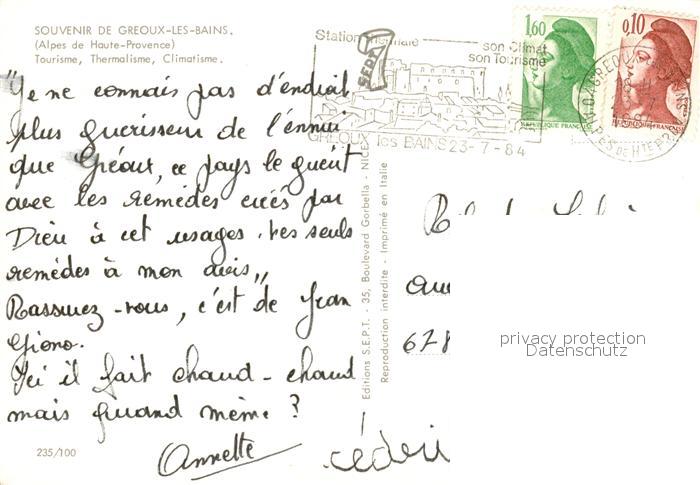 SOUVENIR DE GREOUX-LES-BAINS.
(Alpes de Haute-Provence)
Tourisme, Thermalisme, Climatisme.
"Je ne connais pas d'endroit
plus guerisseur de l'ennui
que Gréoux, ce pays le guérit
avec les remèdes créés par
Dieu à cet usages. Les seuls
remèdes à mon avis"
Rassurez-vous, c'est de Jean
Giono.
Ici il fait chaud - chaud
mais quand même ?
Annette
cédri
235/100
Station thermale
son Climat
son Tourisme
GREOUX les BAINS 23-7-84
SEPT
1,60
REPUBLIQUE FRANÇAISE
0,10
Editions S.E.P.T. - 35, Boulevard Gorbella - NICE
Reproduction interdite - Imprimé en Italie
678
privacy protection
Datenschutz